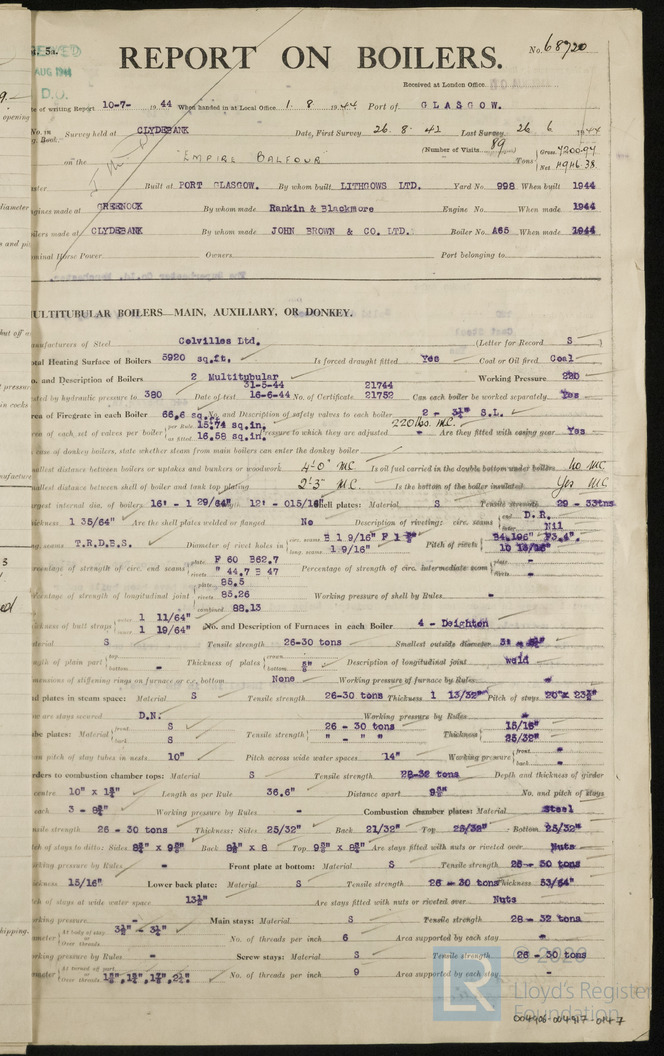 REPORT ON BOILERS.
No. 68920
AUG 1944
D.O.
Received at London Office
of writing Report 10-7- 1944 When handed in at Local Office 1. 8 1944 Port of GLASGOW.
No. in Survey held at CLYDEBANK Date, First Survey 26. 8. 42 Last Survey 26 6 1944
Book.
on the "EMPIRE BALFOUR" (Number of Visits 89) Tons Gross 7200.97 Net
Built at PORT GLASGOW. By whom built LITHGOWS LTD. Yard No. 998 When built 1944
made at GREENOCK By whom made Rankin & Blackmore Engine No. When made 1944
made at CLYDEBANK By whom made JOHN BROWN & CO. LTD. Boiler No. A65 When made 1944
Horse Power Owners Port belonging to
MULTITUBULAR BOILERS—MAIN, AUXILIARY, OR DONKEY.
of Steel Colvilles Ltd. (Letter for Record S
Heating Surface of Boilers 5920 sq.ft. Is forced draught fitted Yes Coal or Oil fired Coal
and Description of Boilers 2 Multitubular Working Pressure 220
31-5-44 21744
by hydraulic pressure to 380 Date of test 16-6-44 No. of Certificate 21752 Can each boiler be worked separately Yes
of Firegrate in each Boiler 66.6 sq. No. and Description of safety valves to each boiler 2 - 3¼" S.L.
of each set of valves per boiler per Rule 15.74 sq.in. as fitted 16.58 sq.in. Pressure to which they are adjusted 220 lbs. MC. Are they fitted with easing gear Yes
case of donkey boilers, state whether steam from main boilers can enter the donkey boiler
distance between boilers or uptakes and bunkers or woodwork 4'-0" MC Is oil fuel carried in the double bottom under boilers No MC
distance between shell of boiler and tank top plating 2'-5" MC. Is the bottom of the boiler insulated Yes MC
internal dia. of boilers 16' - 1 29/64" 12' - 015/16" Shell plates: Material S Tensile strength 29 - 33tns
1 35/64" Are the shell plates welded or flanged No Description of riveting: circ. seams end D.R. inter. Nil
seams T.R.D.B.S. Diameter of rivet holes in circ. seams long. seams 1 9/16" Pitch of rivets
of strength of circ. end seams plate F 60 B62.7 rivets " 44.7 B 47 Percentage of strength of circ. intermediate seam plate - rivets -
of strength of longitudinal joint plate 85.5 rivets 85.26 combined 88.13 Working pressure of shell by Rules -
of butt straps 1 11/64" 1 19/64" No. and Description of Furnaces in each Boiler 4 - Deighton
S Tensile strength 26-30 tons Smallest outside diameter
of plain part top bottom - Thickness of plates crown bottom Description of longitudinal joint weld
of stiffening rings on furnace or c.c. bottom None Working pressure of furnace by Rules -
plates in steam space: Material S Tensile strength 26-30 tons Thickness 1 13/32" Pitch of stays
are stays secured D.N. Working pressure by Rules -
plates: Material front S back S Tensile strength 26 - 30 tons " - " " Thickness 15/16" 25/32"
pitch of stay tubes in nests 10" Pitch across wide water spaces 14" Working pressure front - back -
to combustion chamber tops: Material S Tensile strength 28-32 tons Depth and thickness of girder
centre 10" x 1¾" Length as per Rule 36.6" Distance apart No. and pitch of stays
each 3 - 8¾" Working pressure by Rules - Combustion chamber plates: Material Steel
strength 26 - 30 tons Thickness: Sides 25/32" Back 21/32" Top 25/32" Bottom 25/32"
of stays to ditto: Sides Back Top Are stays fitted with nuts or riveted over Nuts
pressure by Rules - Front plate at bottom: Material S Tensile strength 26 - 30 tons
15/16" Lower back plate: Material S Tensile strength 26 - 30 tons Thickness 53/64"
of stays at wide water space 13½" Are stays fitted with nuts or riveted over Nuts
pressure - Main stays: Material S Tensile strength 28 - 32 tons
At body of stay or Over threads 3½" - 3¼" No. of threads per inch 6 Area supported by each stay -
pressure by Rules - Screw stays: Material S Tensile strength 26 - 30 tons
At turned off part or Over threads No. of threads per inch 9 Area supported by each stay -
© 2020
LR
Lloyd's Register
Foundation
004906-004917-0147